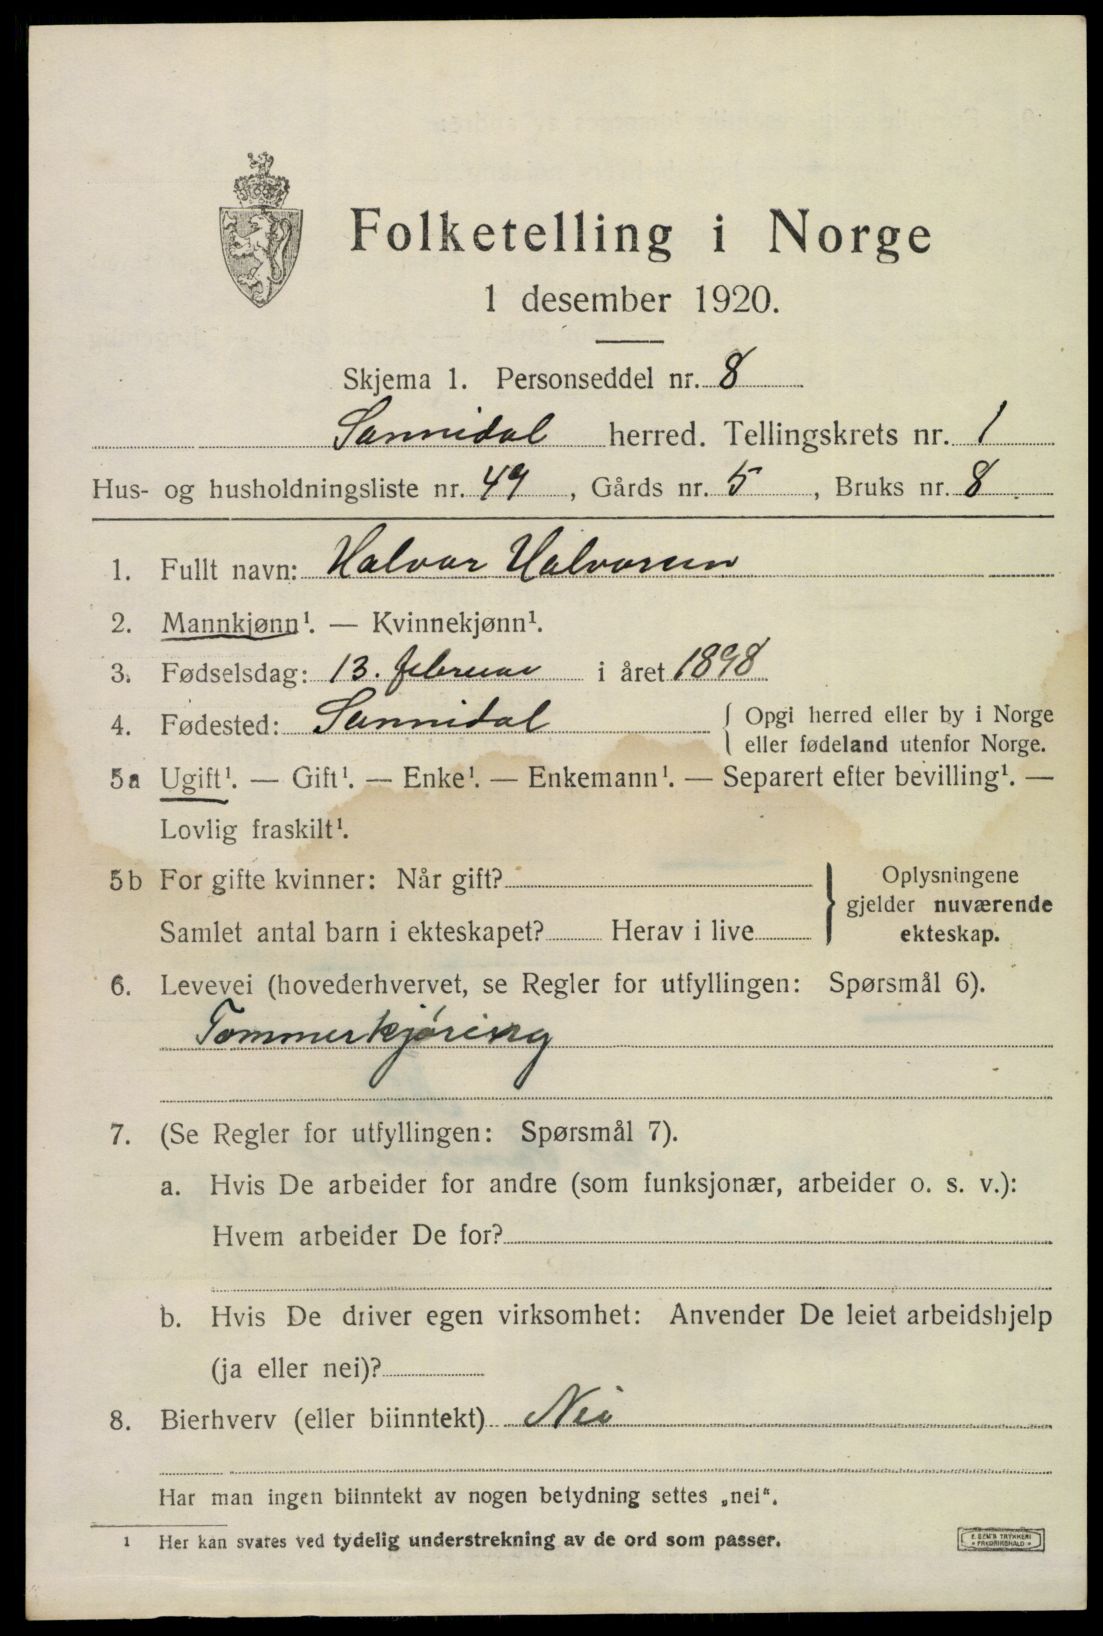 Folketelling i Norge
1 desember 1920.
Skjema 1. Personseddel nr. 8
Sannidal herred. Tellingskrets nr. 1
Hus- og husholdningsliste nr. 49, Gårds nr. 5, Bruks nr. 8
1. Fullt navn: Halvor Halvorsen
2. Mannkjønn¹. — Kvinnekjønn¹.
3. Fødselsdag: 13. februar i året 1898
4. Fødested: Sannidal { Opgi herred eller by i Norge
eller fødeland utenfor Norge.
5a Ugift¹. — Gift¹. — Enke¹. — Enkemann¹. — Separert efter bevilling¹. —
Lovlig fraskilt¹.
5b For gifte kvinner: Når gift?
Samlet antal barn i ekteskapet? Herav i live
} Oplysningene
gjelder nuværende
ekteskap.
6. Levevei (hovederhvervet, se Regler for utfyllingen: Spørsmål 6).
Tømmerkjøring
7. (Se Regler for utfyllingen: Spørsmål 7).
a. Hvis De arbeider for andre (som funksjonær, arbeider o. s. v.):
Hvem arbeider De for?
b. Hvis De driver egen virksomhet: Anvender De leiet arbeidshjelp
(ja eller nei)?
8. Bierhverv (eller biinntekt) Nei
Har man ingen biinntekt av nogen betydning settes „nei".
¹ Her kan svares ved tydelig understrekning av de ord som passer.
E. SEM'S TRYKKERI
FREDRIKSHALD